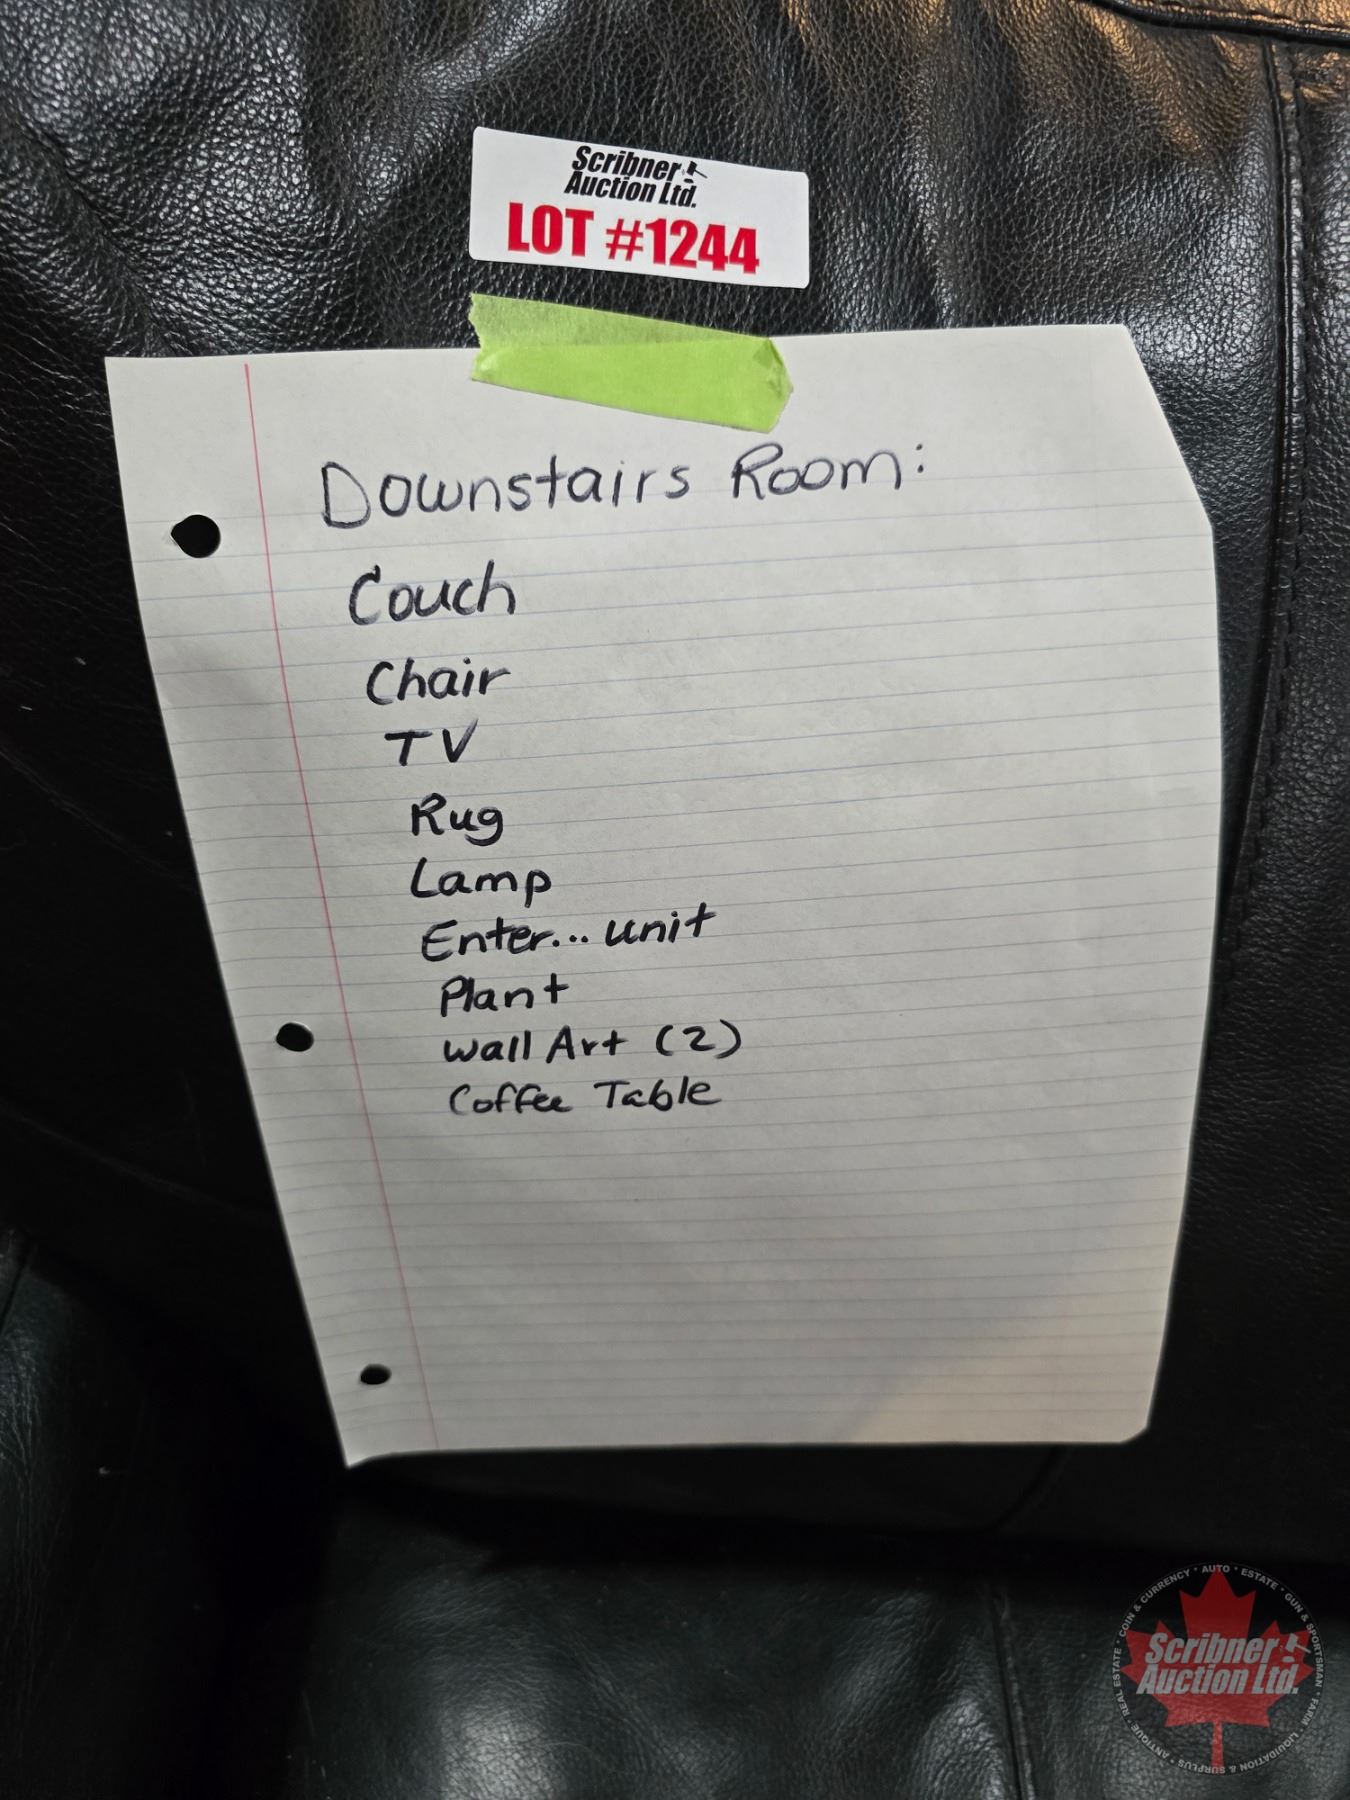 Scribner
Auction Ltd.
LOT #1244
Downstairs Room:
Couch
Chair
TV
Rug
Lamp
Enter... unit
Plant
Wall Art (2)
Coffee Table
COIN & CURRENCY * AUTO * ESTATE * GUN & SPORTSMAN * FARM * LIQUIDATION & SURPLUS * ANTIQUE * REAL ESTATE *
Scribner
Auction Ltd.